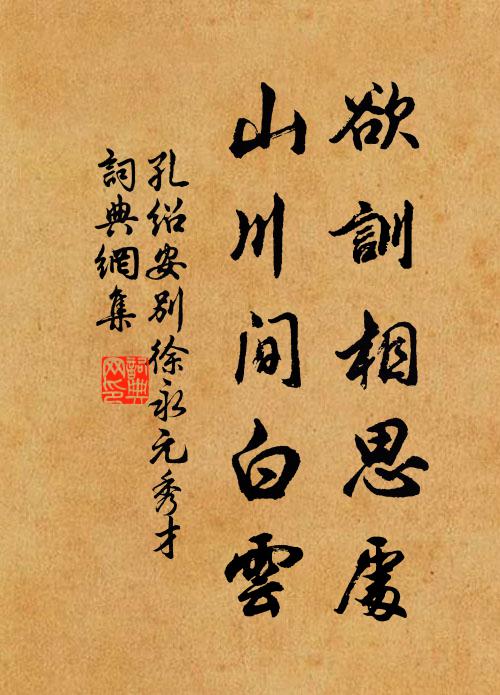 欲訓相思處
山川間白雲
孔紹安別徐永元秀才
詞典網集
詞典網印